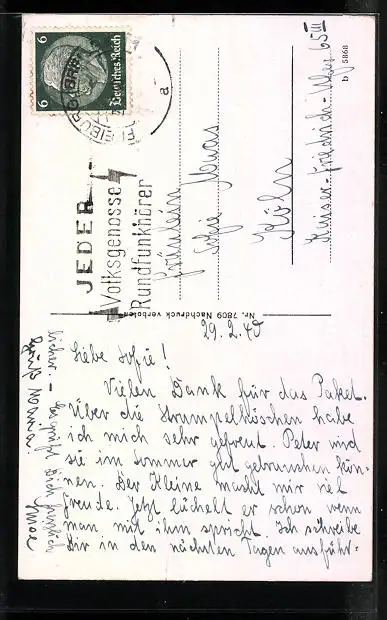 6 Deutsches Reich 6
FREIBURG (BREISGAU)
a
JEDER
Volksgenosse
Rundfunkhörer
Fräulein
Sofie Maas
Köln
Kaiser-Friedrich-Ufer 65 III
b 5868
Nr. 7809 Nachdruck verboten
29.2.40
Liebe Sofie!
Vielen Dank für das Paket.
Über die Strampelhöschen habe
ich mich sehr gefreut. Peter wird
sie im Sommer gut gebrauchen kön-
nen. Der Kleine macht mir viel
Freude. Jetzt lächelt er schon wenn
man mit ihm spricht. Ich schreibe
Dir in den nächsten Tagen ausführ-
licher. – Es grüßt Dich herzlich
Gruß Mama